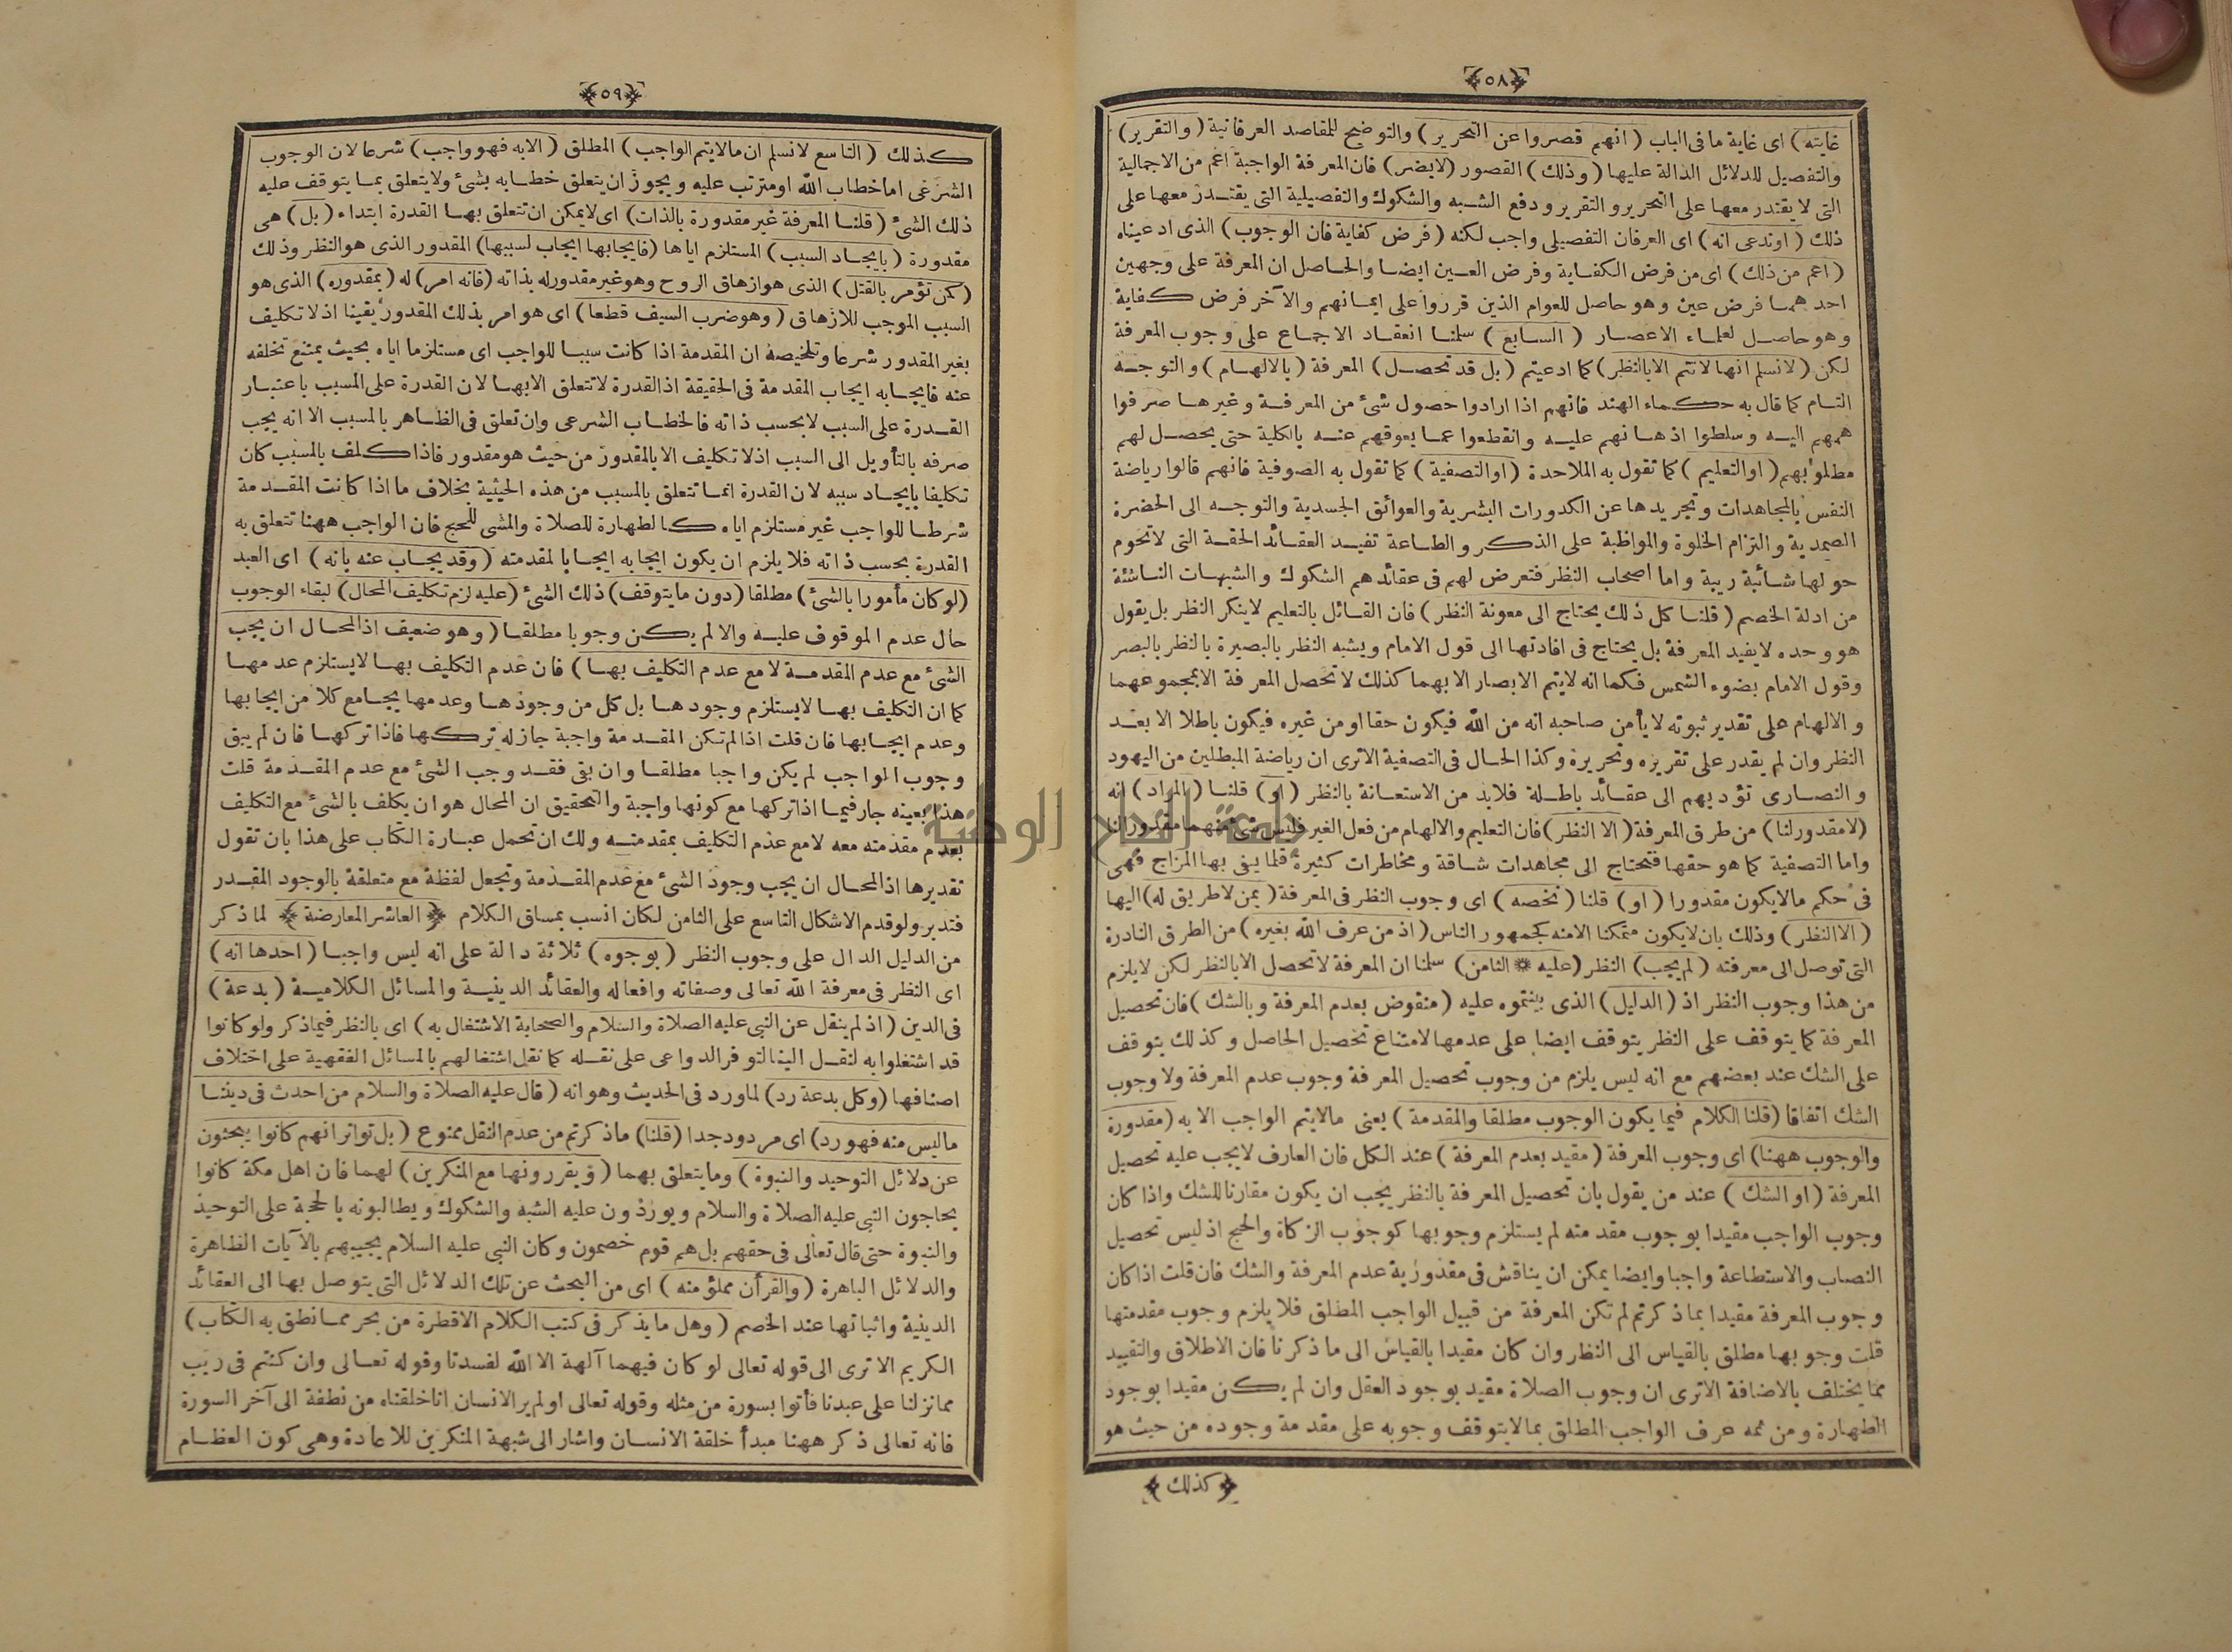 ﴿٥٨﴾
غايته) اى غاية ما فى الباب (انهم قصروا عن التحرير) والتوضيح للمقاصد العرفانية (والتقرير)
والتفصيل للدلائل الدالة عليها (وذلك) القصور (لايضر) فان المعرفة الواجبة اعم من الاجمالية
التى لا يقتدر معها على التحرير و التقرير و دفع الشبه والشكوك والتفصيلية التى يقتدر معها على
ذلك (اوندعى انه) اى العرفان التفصيلى واجب لكنه (فرض كفاية فان الوجوب) الذى ادعيناه
(اعم من ذلك) اى من فرض الكفاية وفرض العين ايضا والحاصل ان المعرفة على وجهين
احدهما فرض عين وهو حاصل للعوام الذين قرروا على ايمانهم والآخر فرض كفاية
وهو حاصل لعلماء الاعصار (السابع) سلمنا انعقاد الاجماع على وجوب المعرفة
لكن (لانسلم انها لاتتم الا بالنظر) كما ادعيتم (بل قد تحصل) المعرفة (بالالهام) والتوجه
التام كما قال به حكماء الهند فانهم اذا ارادوا حصول شئ من المعرفة وغيرها صرفوا
هممهم اليه وسلطوا اذهانهم عليه وانقطعوا عما يعوقهم عنه بالكلية حتى يحصل لهم
مطلوبهم (اوالتعليم) كما تقول به الملاحدة (اوالتصفية) كما تقول به الصوفية فانهم قالوا رياضة
النفس بالمجاهدات وتجريدها عن الكدورات البشرية والعوائق الجسدية والتوجه الى الحضرة
الصمدية والتزام الخلوة والمواظبة على الذكر والطاعة تفيد العقائد الحقة التى لاتحوم
حولها شائبة ريبة واما اصحاب النظر فتعرض لهم فى عقائدهم الشكوك والشبهات الناشئة
من ادلة الخصم (قلنا كل ذلك يحتاج الى معونة النظر) فان القائل بالتعليم لاينكر النظر بل يقول
هو وحده لايفيد المعرفة بل يحتاج فى افادتها الى قول الامام ويشبه النظر بالبصيرة بالنظر بالبصر
وقول الامام بضوء الشمس فكما انه لايتم الابصار الا بهما كذلك لاتحصل المعرفة الابمجموعهما
والالهام على تقدير ثبوته لايأمن صاحبه انه من الله فيكون حقا اومن غيره فيكون باطلا الا بعد
النظر وان لم يقدر على تقريره وتحريره وكذا الحال فى التصفية الاترى ان رياضة المبطلين من اليهود
والنصارى تؤديهم الى عقائد باطلة فلابد من الاستعانة بالنظر (او) قلنا (المراد) انه
(لامقدور لنا) من طرق المعرفة (الا النظر) فان التعليم والالهام من فعل الغير فليس شئ منهما مقدورا لنا
واما التصفية كما هو حقها فتحتاج الى مجاهدات شاقة ومخاطرات كثيرة قلما يفى بها المزاج فهى
فى حكم مالايكون مقدورا (او) قلنا (نخصه) اى وجوب النظر فى المعرفة (بمن لاطريق له) اليها
(الا النظر) وذلك بان لايكون متمكنا الامنه كجمهور الناس (اذ من عرف الله بغيره) من الطرق النادرة
التى توصل الى معرفته (لم يجب) النظر (عليه * الثامن) سلمنا ان المعرفة لاتحصل الابالنظر لكن لايلزم
من هذا وجوب النظر اذ (الدليل) الذى بينتموه عليه (منقوض بعدم المعرفة وبالشك) فان تحصيل
المعرفة كما يتوقف على النظر يتوقف ايضا على عدمها لامتناع تحصيل الحاصل وكذلك يتوقف
على الشك عند بعضهم مع انه ليس يلزم من وجوب تحصيل المعرفة وجوب عدم المعرفة ولا وجوب
الشك اتفاقا (قلنا الكلام فيما يكون الوجوب مطلقا والمقدمة) يعنى مالايتم الواجب الا به (مقدورة
والوجوب ههنا) اى وجوب المعرفة (مقيد بعدم المعرفة) عند الكل فان العارف لايجب عليه تحصيل
المعرفة (او الشك) عند من يقول بان تحصيل المعرفة بالنظر يجب ان يكون مقارنا للشك واذا كان
وجوب الواجب مقيدا بوجوب مقدمته لم يستلزم وجوبها كوجوب الزكاة والحج اذ ليس تحصيل
النصاب والاستطاعة واجبا وايضا يمكن ان يناقش فى مقدورية عدم المعرفة والشك فان قلت اذا كان
وجوب المعرفة مقيدا بماذكرتم لم تكن المعرفة من قبيل الواجب المطلق فلا يلزم وجوب مقدمتها
قلت وجوبها مطلق بالقياس الى النظر وان كان مقيدا بالقياس الى ما ذكرنا فان الاطلاق والتقييد
مما يختلف بالاضافة الاترى ان وجوب الصلاة مقيد بوجود العقل وان لم يكن مقيدا بوجود
الطهارة ومن ثمه عرف الواجب المطلق بمالايتوقف وجوبه على مقدمة وجوده من حيث هو
﴿كذلك﴾
﴿٥٩﴾
كذلك (التاسع لانسلم ان مالايتم الواجب) المطلق (الابه فهو واجب) شرعا لان الوجوب
الشرعى اما خطاب الله او مترتب عليه ويجوز ان يتعلق خطابه بشئ ولايتعلق بما يتوقف عليه
ذلك الشئ (قلنا المعرفة غير مقدورة بالذات) اى لايمكن ان تتعلق بها القدرة ابتداء (بل) هى
مقدورة (بايجاد السبب) المستلزم اياها (فايجابها ايجاب لسببها) المقدور الذى هو النظر وذلك
(كمن تؤمر بالقتل) الذى هو ازهاق الروح وهو غير مقدور له بذاته (فانه امر) له (بمقدوره) الذى هو
السبب الموجب للازهاق (وهو ضرب السيف قطعا) اى هو امر بذلك المقدور يقينا اذ لاتكليف
بغير المقدور شرعا وتلخيصه ان المقدمة اذا كانت سببا للواجب اى مستلزما اياه بحيث يمتنع تخلفه
عنه فايجابه ايجاب المقدمة فى الحقيقة اذ القدرة لاتتعلق الابها لان القدرة على المسبب باعتبار
القدرة على السبب لابحسب ذاته فالخطاب الشرعى وان تعلق فى الظاهر بالمسبب الا انه يجب
صرفه بالتأويل الى السبب اذ لا تكليف الا بالمقدور من حيث هو مقدور فاذا كلف بالمسبب كان
تكليفا بايجاد سببه لان القدرة انما تتعلق بالمسبب من هذه الحيثية بخلاف ما اذا كانت المقدمة
شرطا للواجب غير مستلزم اياه كالطهارة للصلاة والمشى للحج فان الواجب ههنا تتعلق به
القدرة بحسب ذاته فلا يلزم ان يكون ايجابه ايجابا لمقدمته (وقد يجاب عنه بانه) اى العبد
(لو كان مأمورا بالشئ) مطلقا (دون مايتوقف) ذلك الشئ (عليه لزم تكليف المحال) لبقاء الوجوب
حال عدم الموقوف عليه والا لم يكن وجوبا مطلقا (وهو ضعيف اذ المحال ان يجب
الشئ مع عدم المقدمة لامع عدم التكليف بها) فان عدم التكليف بها لايستلزم عدمها
كما ان التكليف بها لايستلزم وجودها بل كل من وجودها وعدمها يجامع كلا من ايجابها
وعدم ايجابها فان قلت اذا لم تكن المقدمة واجبة جاز له تركها فاذا تركها فان لم يبق
وجوب الواجب لم يكن واجبا مطلقا وان بقى فقد وجب الشئ مع عدم المقدمة قلت
هذا بعينه جار فيما اذا تركها مع كونها واجبة والتحقيق ان المحال هو ان يكلف بالشئ مع التكليف
بعدم مقدمته معه لامع عدم التكليف بمقدمته ولك ان تحمل عبارة الكتاب على هذا بان تقول
تقديرها اذ المحال ان يجب وجود الشئ مع عدم المقدمة وتجعل لفظة مع متعلقة بالوجود المقدر
فتدبر ولو قدم الاشكال التاسع على الثامن لكان انسب بمساق الكلام ﴿العاشر المعارضة﴾ لما ذكر
من الدليل الدال على وجوب النظر (بوجوه) ثلاثة دالة على انه ليس واجبا (احدها انه)
اى النظر فى معرفة الله تعالى وصفاته وافعاله والعقائد الدينية والمسائل الكلامية (بدعة)
فى الدين (اذ لم ينقل عن النبى عليه الصلاة والسلام والصحابة الاشتغال به) اى بالنظر فيماذكر ولو كانوا
قد اشتغلوا به لنقل الينا لتوفر الدواعى على نقله كما نقل اشتغالهم بالمسائل الفقهية على اختلاف
اصنافها (وكل بدعة رد) لماورد فى الحديث وهو انه (قال عليه الصلاة والسلام من احدث فى ديننا
ماليس منه فهو رد) اى مردود جدا (قلنا) ماذكرتم من عدم النقل ممنوع (بل تواتر انهم كانوا يبحثون
عن دلائل التوحيد والنبوة) ومايتعلق بهما (ويقررونها مع المنكرين) لهما فان اهل مكة كانوا
يحاجون النبى عليه الصلاة والسلام ويوردون عليه الشبه والشكوك ويطالبونه بالحجة على التوحيد
والنبوة حتى قال تعالى فى حقهم بل هم قوم خصمون وكان النبى عليه السلام يجيبهم بالآيات الظاهرة
والدلائل الباهرة (والقرأن مملؤ منه) اى من البحث عن تلك الدلائل التى يتوصل بها الى العقائد
الدينية واثباتها عند الخصم (وهل مايذكر فى كتب الكلام الاقطرة من بحر ممانطق به الكتاب)
الكريم الا ترى الى قوله تعالى لو كان فيهما آلهة الا الله لفسدتا وقوله تعالى وان كنتم فى ريب
ممانزلنا على عبدنا فأتوا بسورة من مثله وقوله تعالى اولم ير الانسان انا خلقناه من نطفة الى آخر السورة
فانه تعالى ذكر ههنا مبدأ خلقة الانسان واشار الى شبهة المنكرين للاعادة وهى كون العظام